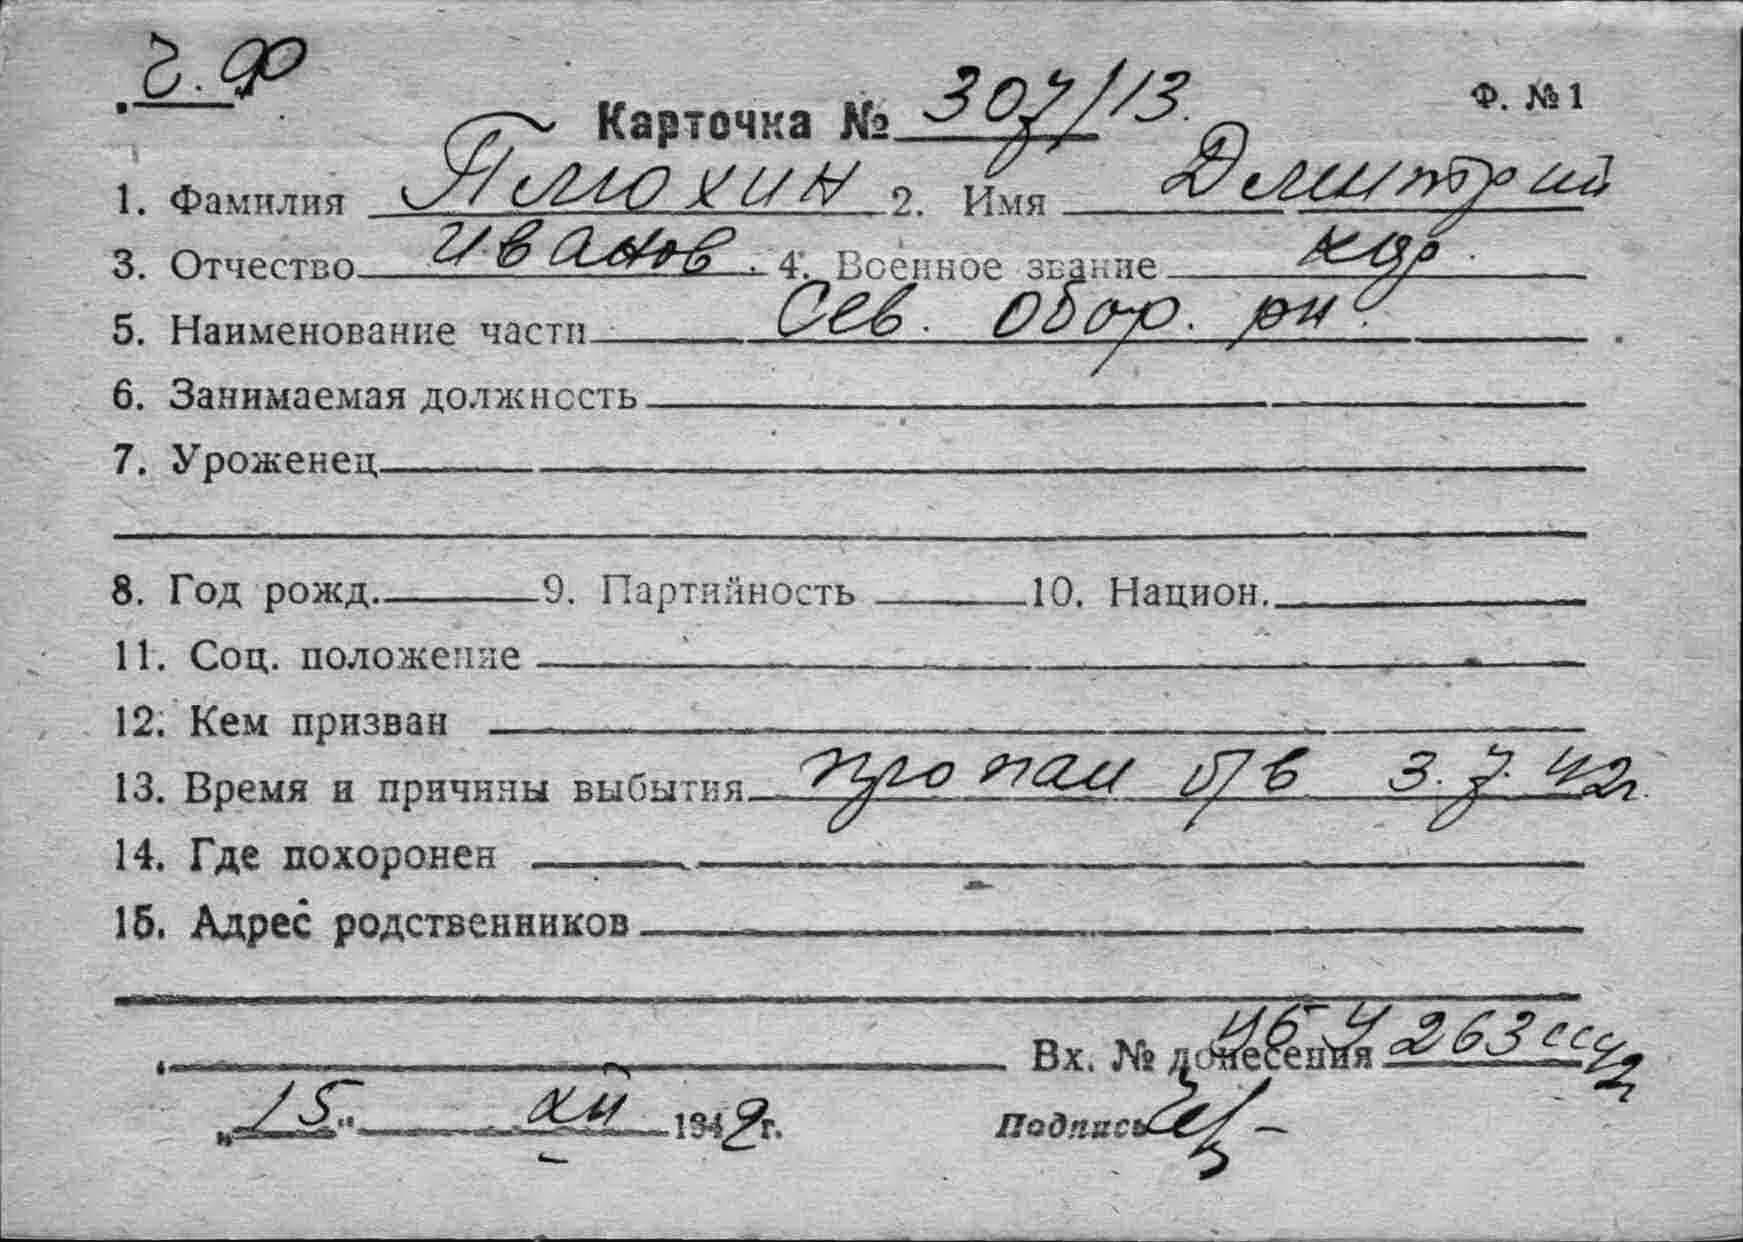 Ч.Ф
Карточка № 307/13. Ф. № 1
1. Фамилия Плюхин 2. Имя Дмитрий
3. Отчество Иванов. 4. Военное звание кр.
5. Наименование части Сев. Обор. рн.
6. Занимаемая должность
7. Уроженец
8. Год рожд. 9. Партийность 10. Национ.
11. Соц. положение
12. Кем призван
13. Время и причины выбытия пропал б/в 3.7.42г.
14. Где похоронен
15. Адрес родственников
Вх. № донесения 263сс
„15“ XII 1942г. Подпись